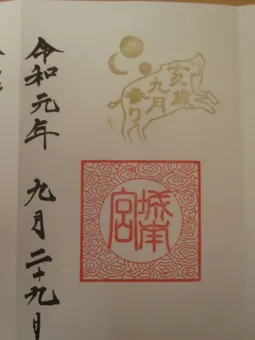 亥歳
九月
参り
城南宮
令和元年 九月二十九日